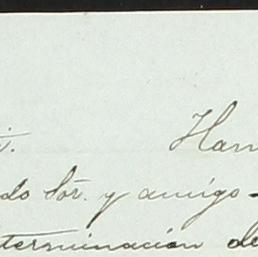 Ham
do Sor. y amigo-
terminación de